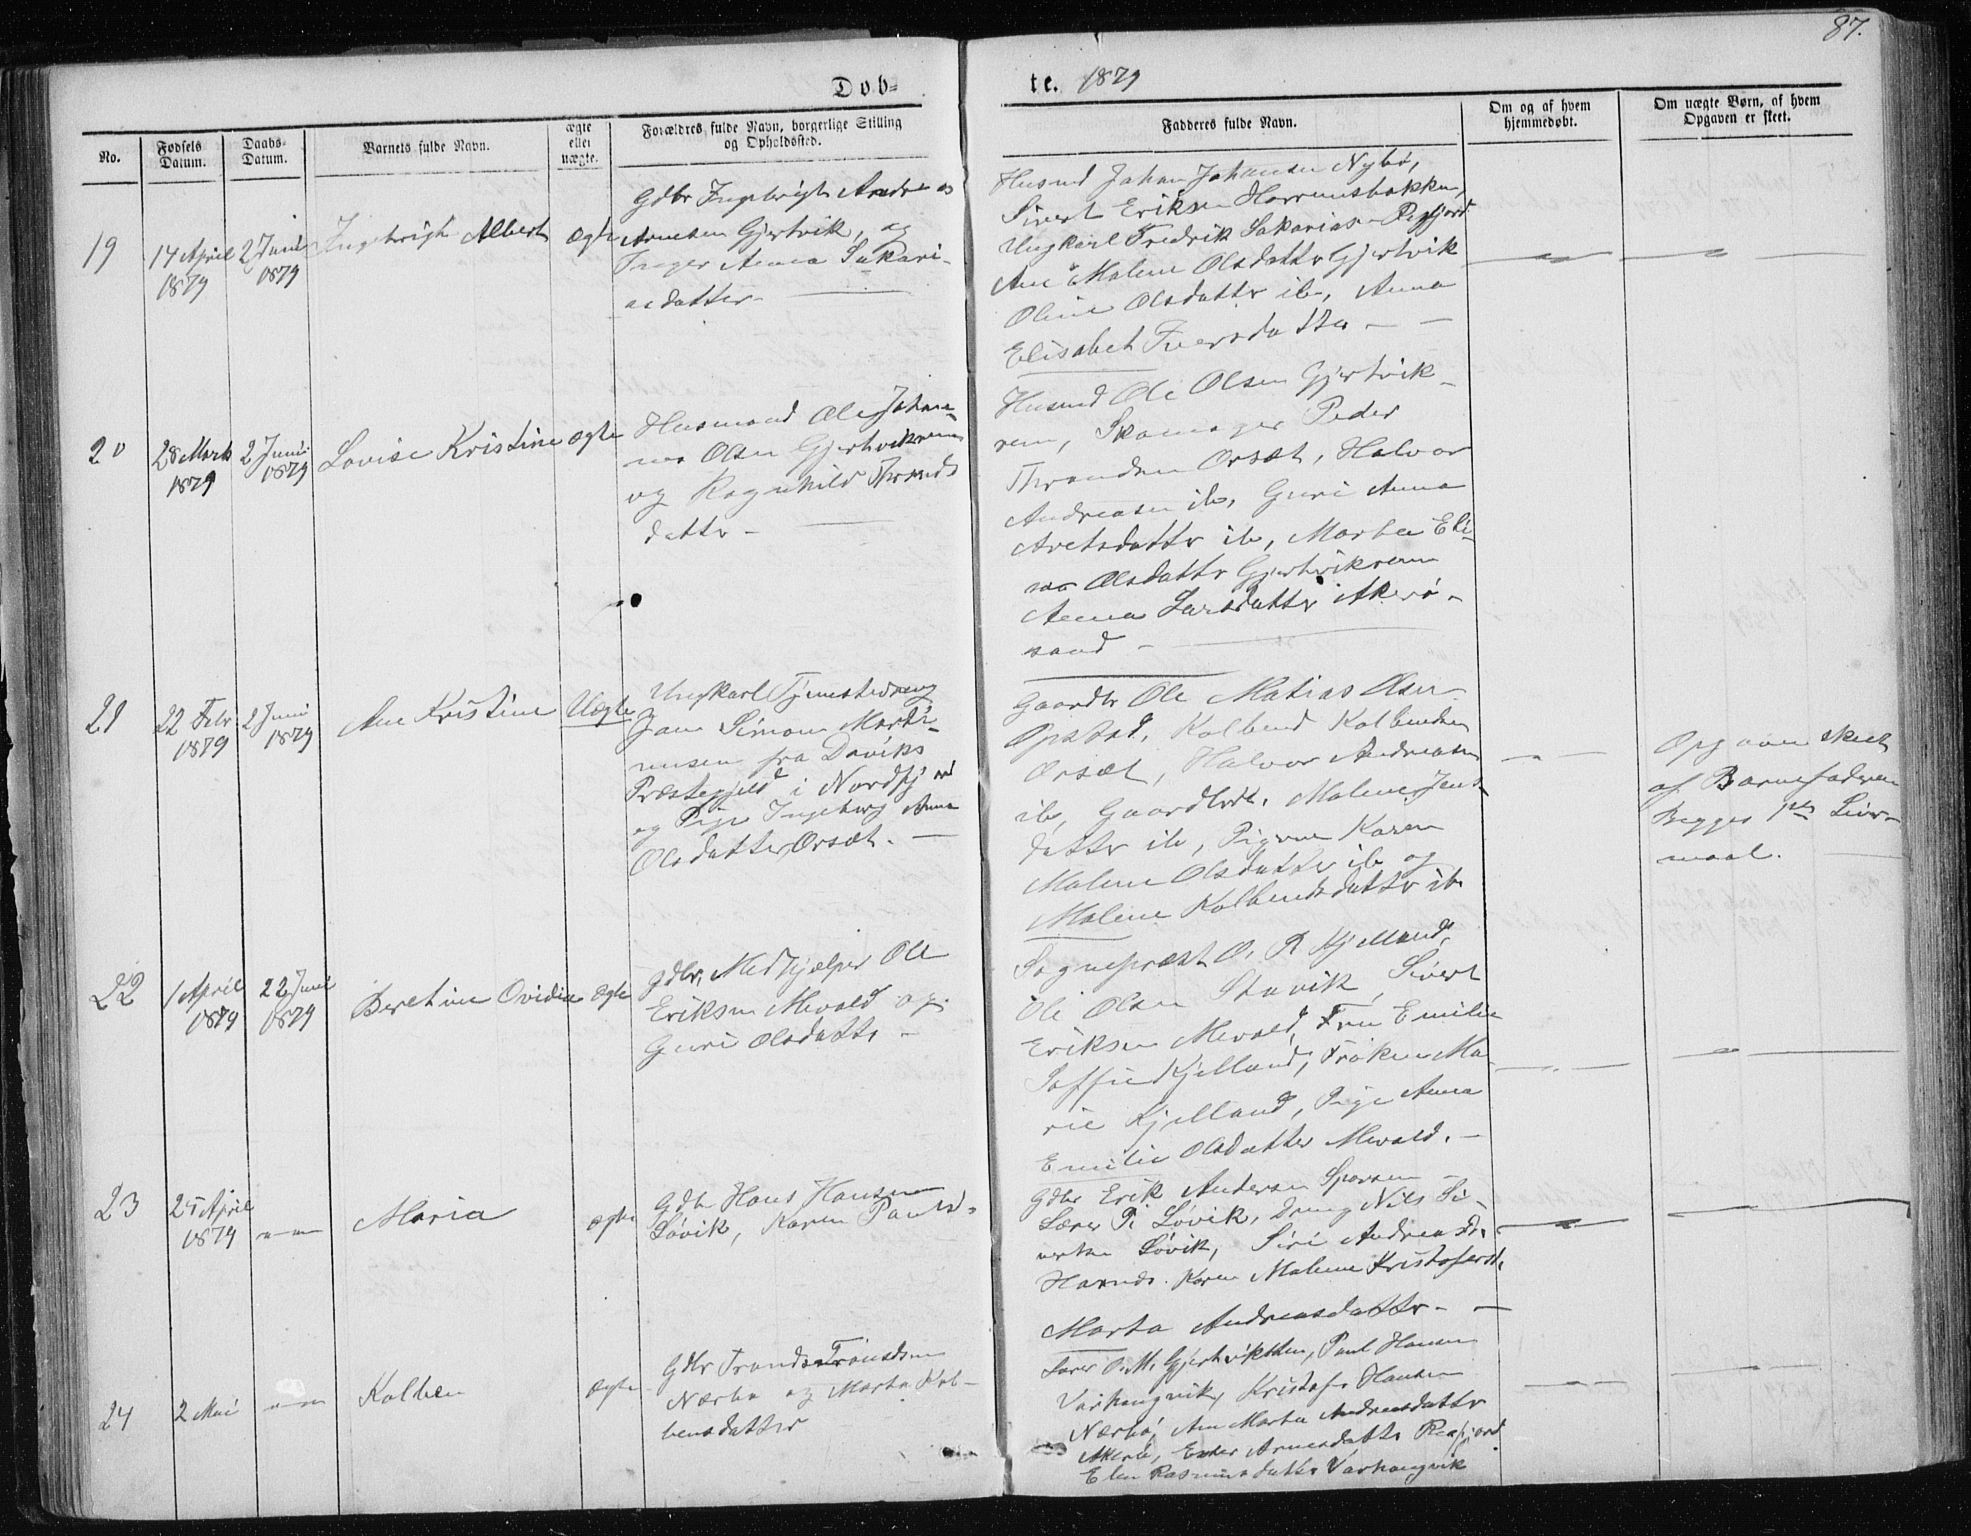 87.
Døb=
te. 1879
No.
Fødsels Datum.
Daabs- Datum.
Barnets fulde Navn.
ægte eller uægte.
Forældres fulde Navn, borgerlige Stilling og Opholdssted.
Fadderes fulde Navn.
Om og af hvem hjemmedøbt.
Om uægte Børn, af hvem Opgaven er skeet.
19
14 April 1879
2 Juni 1879
Ingebrigt Albert
ægte
Gdbr Ingebrigt Andreas
Arnesen Gjertvik, og
Inger Anna Sakari-
asdatter -
Husmd Johan Johansen Nybø,
Sivert Eriksen
Ungkarl Fredrik Sakariasen
Ane Malene Olsdatter Gjertvik
Oline Olsdatter ib, Anna
Elisabet Iversdatter -
20
28 Marts 1879
2 Juni 1879
Lovise Kristine
ægte
Husmand Ole Johan-
nes Olsen Gjertvikrem
og Ragnhild Thronds
datter -
Husmd Ole Olsen Gjertvik-
rem, Skomager Peder
Throndsen Orsæt, Halvor
Andreasen ib, Guri Anna
datter ib, Martha Eli-
sa Olsdatter Gjertvikrem
Anna Larsdatter Akerø-
sand -
21
22 Febr. 1879
2 Juni 1879
Ane Kristine
Uægte
Ungkarl Tjenestedreng
Jans Simon Marti-
nusen fra Daviks
Præstegjeld i Nordfjord
og Pige Ingeborg Anna
Olsdatter Orsæt. -
Gaardbr Ole Matias Olsen
Opstad, Kolbend Kolbendsen
Orsæt, Halvor Andreasen
ib, Gaardbrk. Malene Jens-
datter ib, Pigerne Karen
Malene Olsdatter ib og
Malene Kolbendsdatter ib
Opgaven skeet
af Barnefaderen
Begges 1ste Leier-
maal.
22
1 April 1879
22 Juni 1879
Beretine Ovidia
ægte
Gdbr, Medhjælper Ole
Eriksen Mevold og
Guri Olsdatter -
Sogneprest O. R Kjelland,
Ole Olsen Stavik, Sivert
Eriksen Mevold, Fru Emilie
Soffie Kjelland, Frøken Ma-
rie Kjelland, Pige Anna
Emilie Olsdatter Mevold. -
23
25 April 1879
" - "
Maria
ægte
Gdbr Hans Hansen
Løvik, Karen Paulsd.
Gdbr Erik Andersen
Lærer P. Løvik, Dreng Nils Si-
vertsen Løvik, Siri Andreasd.
Karen Malene Kristofersd.
Marta Andreasdatter -
24
2 Mai
" - "
Kolben
ægte
Gdbr Trond Trondsen
Nærbø og Marta Kol-
bensdatter
Lærer O. M. Paul Hansen
Varhaugvik, Kristofer Hansen
Nærbø, Ane Marta Andreasdatter
Akerø, Ester Arnesdatter
Elen Rasmusdatter Varhaugvik